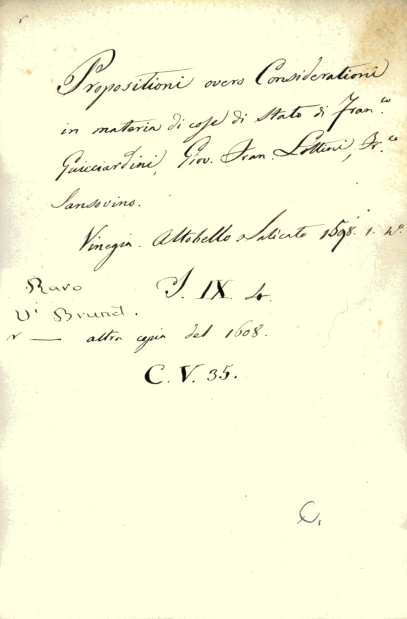 Propositioni overo Considerationi
in materia di cose di Stato di Fran.co
Guicciardini, Giov. Fran. Lottini, Fr.co
Sansovino.
Vinegia. Altobello Salicato 1598. 1. 4o.
Raro
V. Brunet.
I. IX. 4.
altra copia del 1608.
C. V. 35.
C.